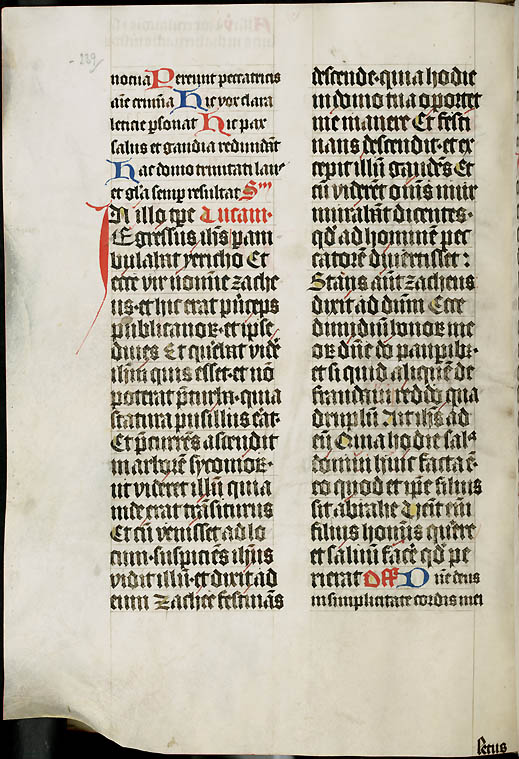 229
nocuā Pereunt peccatricis
aīe crimīa Hic vox clara
leticie ꝑsonat Hic pax
salus et gaudia redundāt
Hac domo trinitati laus
et glīa semꝑ resultat Sᵐ
In illo tꝑe Lucam·
Egressus ihūs ꝑam
bulabat yericho Et
ecce vir nomīe zache
us· et hic erat pͥnceps
publicanoꝝ· et ipse
diues Et querebat vidē
ihūm quis esset· et nō
poterat p̄ turba· quia
statura pusillus erat·
Et p̄currēs ascendit
in arborē sycomoꝝ·
ut videret illū quia
inde erat trāsiturus
Et cū venisset ad lo
cum· suspiciēs ihūs
vidit illū· et dixit ad
eum Zachee festināns
descende· quia hodie
in domo tua oportet
me manere Et festi
nans descendit· et ex
cepit illū gaudēs Et
cū viderēt om̄s mur
murabāt dicentes·
qd̄ ad hominē pec
catorē diuertisset :
Stans aūt zacheus
dixit ad dūm Ecce
dimidiū bonoꝝ me
oꝝ dn̄e do pauꝑibꝫ·
et si quid aliquē de
fraudaui reddo qua
druplū Ait ihs ad
eū Quia hodie salᵃ
domui huic facta ē·
eo quod et ip̄e filius
sit abrahe Uenit enī
filius homīs querere
et saluū facē qd̄ pe
rierat Off Dn̄e deus
in simplicitate cordis mei
letus